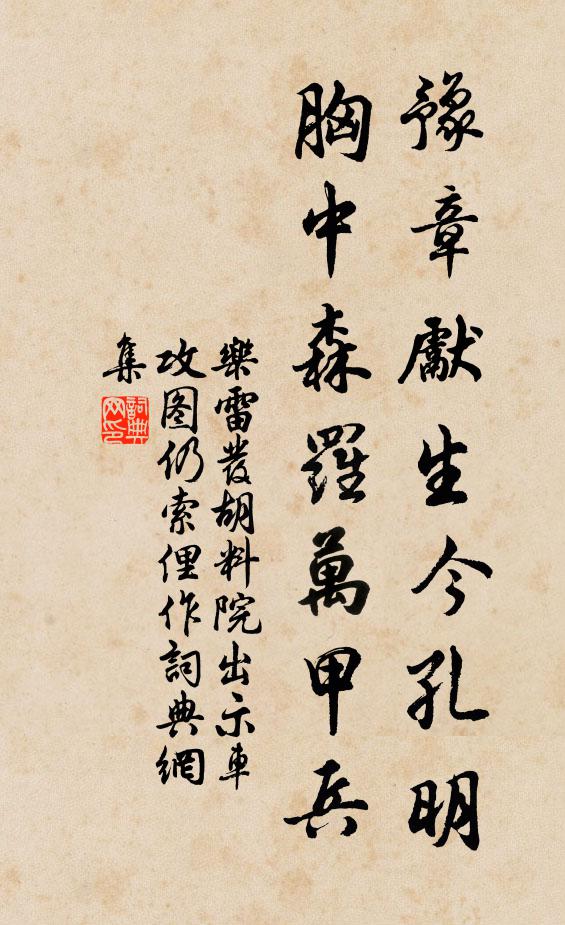 豫章獻生今孔明
胸中森羅萬甲兵
樂雷發胡料院出示車
攻图仍索俚作詞典網
集
詞典
网印